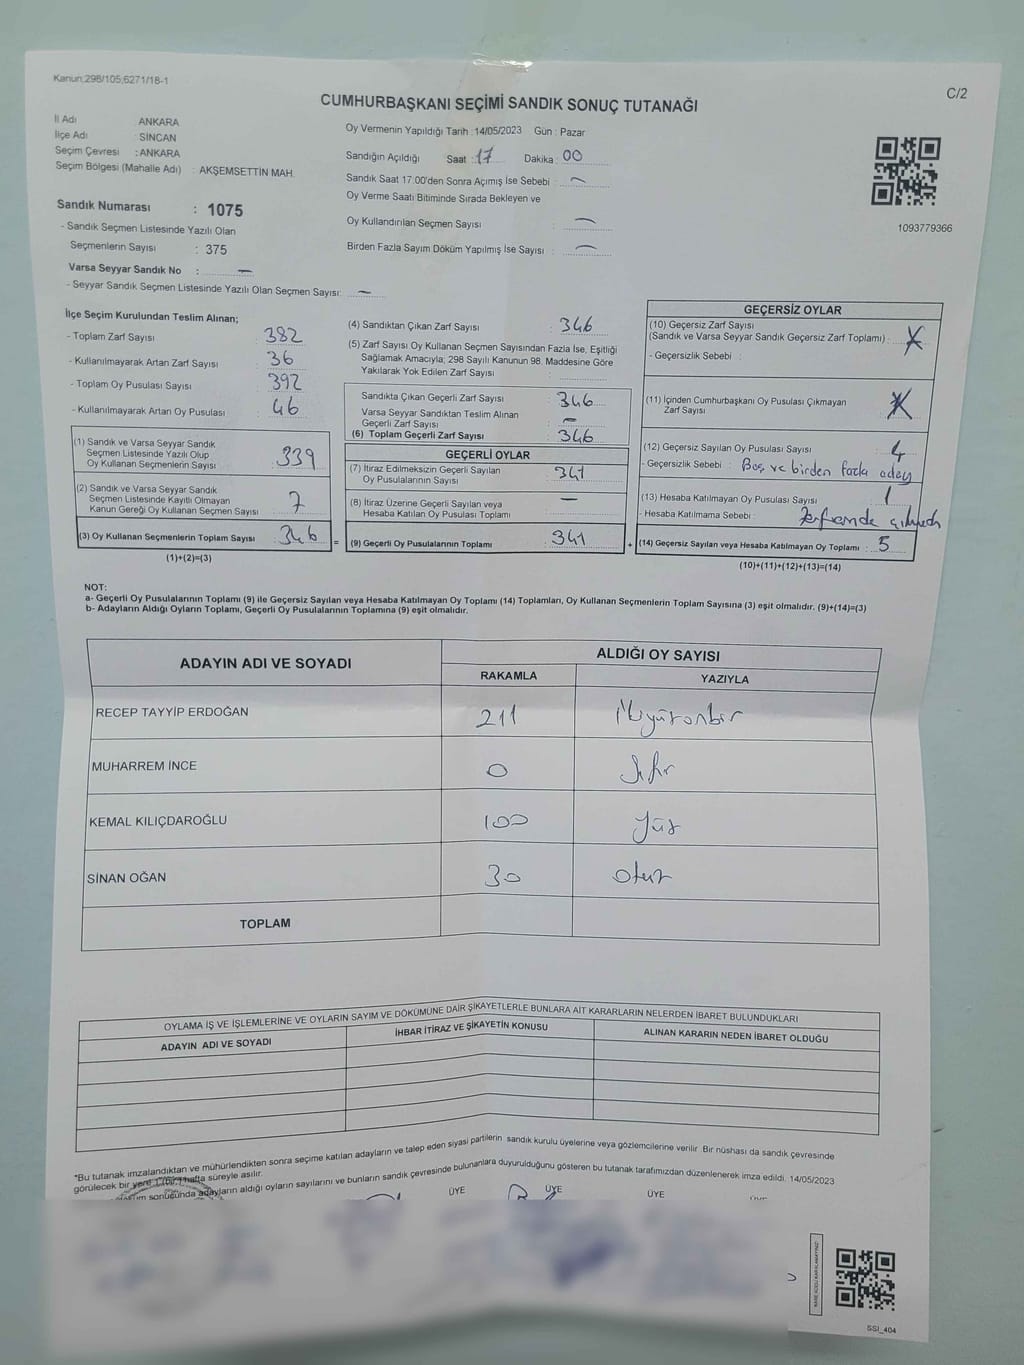 Kanun;298/105;6271/18-1
C/2
CUMHURBAŞKANI SEÇİMİ SANDIK SONUÇ TUTANAĞI
İl Adı : ANKARA
İlçe Adı : SİNCAN
Seçim Çevresi : ANKARA
Seçim Bölgesi (Mahalle Adı) : AKŞEMSETTİN MAH.
Sandık Numarası : 1075
- Sandık Seçmen Listesinde Yazılı Olan
Seçmenlerin Sayısı : 375
Varsa Seyyar Sandık No : —
- Seyyar Sandık Seçmen Listesinde Yazılı Olan Seçmen Sayısı: —
Oy Vermenin Yapıldığı Tarih : 14/05/2023 Gün : Pazar
Sandığın Açıldığı Saat : 17 Dakika : 00
Sandık Saat 17:00'den Sonra Açımış İse Sebebi : —
Oy Verme Saati Bitiminde Sırada Bekleyen ve
Oy Kullandırılan Seçmen Sayısı : —
Birden Fazla Sayım Döküm Yapılmış İse Sayısı : —
1093779366
İlçe Seçim Kurulundan Teslim Alınan;
- Toplam Zarf Sayısı : 382
- Kullanılmayarak Artan Zarf Sayısı : 36
- Toplam Oy Pusulası Sayısı : 392
- Kullanılmayarak Artan Oy Pusulası : 46
(1) Sandık ve Varsa Seyyar Sandık
Seçmen Listesinde Yazılı Olup
Oy Kullanan Seçmenlerin Sayısı : 339
(2) Sandık ve Varsa Seyyar Sandık
Seçmen Listesinde Kayıtlı Olmayan
Kanun Gereği Oy Kullanan Seçmen Sayısı : 7
(3) Oy Kullanan Seçmenlerin Toplam Sayısı : 346
(1)+(2)=(3)
(4) Sandıktan Çıkan Zarf Sayısı : 346
(5) Zarf Sayısı Oy Kullanan Seçmen Sayısından Fazla İse, Eşitliği
Sağlamak Amacıyla; 298 Sayılı Kanunun 98. Maddesine Göre
Yakılarak Yok Edilen Zarf Sayısı :
Sandıkta Çıkan Geçerli Zarf Sayısı : 346
Varsa Seyyar Sandıktan Teslim Alınan
Geçerli Zarf Sayısı : —
(6) Toplam Geçerli Zarf Sayısı : 346
GEÇERLİ OYLAR
(7) İtiraz Edilmeksizin Geçerli Sayılan
Oy Pusulalarının Sayısı : 341
(8) İtiraz Üzerine Geçerli Sayılan veya
Hesaba Katılan Oy Pusulası Toplamı : —
= (9) Geçerli Oy Pusulalarının Toplamı : 341
GEÇERSİZ OYLAR
(10) Geçersiz Zarf Sayısı
(Sandık ve Varsa Seyyar Sandık Geçersiz Zarf Toplamı) :
- Geçersizlik Sebebi :
(11) İçinden Cumhurbaşkanı Oy Pusulası Çıkmayan
Zarf Sayısı :
(12) Geçersiz Sayılan Oy Pusulası Sayısı : 4
- Geçersizlik Sebebi : Boş ve birden fazla aday
(13) Hesaba Katılmayan Oy Pusulası Sayısı : 1
- Hesaba Katılmama Sebebi : Zarfından
+ (14) Geçersiz Sayılan veya Hesaba Katılmayan Oy Toplamı : 5
(10)+(11)+(12)+(13)=(14)
NOT:
a- Geçerli Oy Pusulalarının Toplamı (9) ile Geçersiz Sayılan veya Hesaba Katılmayan Oy Toplamı (14) Toplamları, Oy Kullanan Seçmenlerin Toplam Sayısına (3) eşit olmalıdır. (9)+(14)=(3)
b- Adayların Aldığı Oyların Toplamı, Geçerli Oy Pusulalarının Toplamına (9) eşit olmalıdır.
ADAYIN ADI VE SOYADI
ALDIĞI OY SAYISI
RAKAMLA YAZIYLA
RECEP TAYYİP ERDOĞAN 211 İkiyüzonbir
MUHARREM İNCE 0 Sıfır
KEMAL KILIÇDAROĞLU 100 Yüz
SİNAN OĞAN 30 Otuz
TOPLAM
OYLAMA İŞ VE İŞLEMLERİNE VE OYLARIN SAYIM VE DÖKÜMÜNE DAİR ŞİKAYETLERLE BUNLARA AİT KARARLARIN NELERDEN İBARET BULUNDUKLARI
ADAYIN ADI VE SOYADI
İHBAR İTİRAZ VE ŞİKAYETİN KONUSU
ALINAN KARARIN NEDEN İBARET OLDUĞU
*Bu tutanak imzalandıktan ve mühürlendikten sonra seçime katılan adayların ve talep eden siyasi partilerin sandık kurulu üyelerine veya gözlemcilerine verilir. Bir nüshası da sandık çevresinde
görülecek bir yere 1 (bir) hafta süreyle asılır.
sonucunda adayların aldığı oyların sayılarını ve bunların sandık çevresinde bulunanlara duyurulduğunu gösteren bu tutanak tarafımızdan düzenlenerek imza edildi. 14/05/2023
ÜYE ÜYE ÜYE
SSI_404